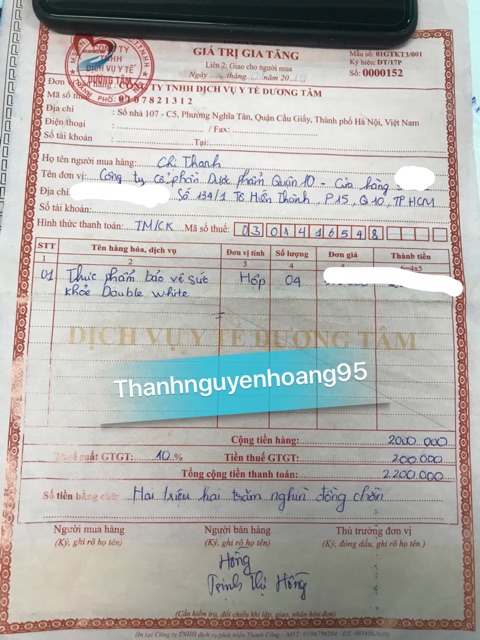 GIÁ TRỊ GIA TĂNG
Liên 2: Giao cho người mua
Mẫu số: 01GTKT3/001
Ký hiệu: DT/17P
Số: 0000152
CÔNG TY TNHH DỊCH VỤ Y TẾ DƯƠNG TÂM
Mã số 0107821312
Địa chỉ : Số nhà 107 - C5, Phường Nghĩa Tân, Quận Cầu Giấy, Thành phố Hà Nội, Việt Nam
Điện thoại : / Fax:
Số tài khoản : Tại:
Họ tên người mua hàng: Chị Thanh
Tên đơn vị: Công ty Cổ phần Dược phẩm Quận 10 - Cửa hàng
Địa chỉ Số 134/1 Tô Hiến Thành, P15, Q10, TP HCM
Số tài khoản:
Hình thức thanh toán: TM/CK Mã số thuế: 0301416548
STT Tên hàng hóa, dịch vụ Đơn vị tính Số lượng Đơn giá Thành tiền
1 2 3 4
01 Thực phẩm bảo vệ sức Hộp 04
khỏe Double White
DỊCH VỤ Y TẾ DƯƠNG TÂM
Thanhnguyenhoang95
Cộng tiền hàng: 2000.000
suất GTGT: 10 % Tiền thuế GTGT: 200.000
Tổng cộng tiền thanh toán: 2.200.000
Số tiền bằng chữ: Hai triệu hai trăm nghìn đồng chẵn
Người mua hàng Người bán hàng Thủ trưởng đơn vị
(Ký, ghi rõ họ tên) (Ký, ghi rõ họ tên) (Ký, đóng dấu, ghi rõ họ tên)
Hồng
Trịnh Thị Hồng
(Cần kiểm tra, đối chiếu khi lập, giao, nhận hóa đơn)